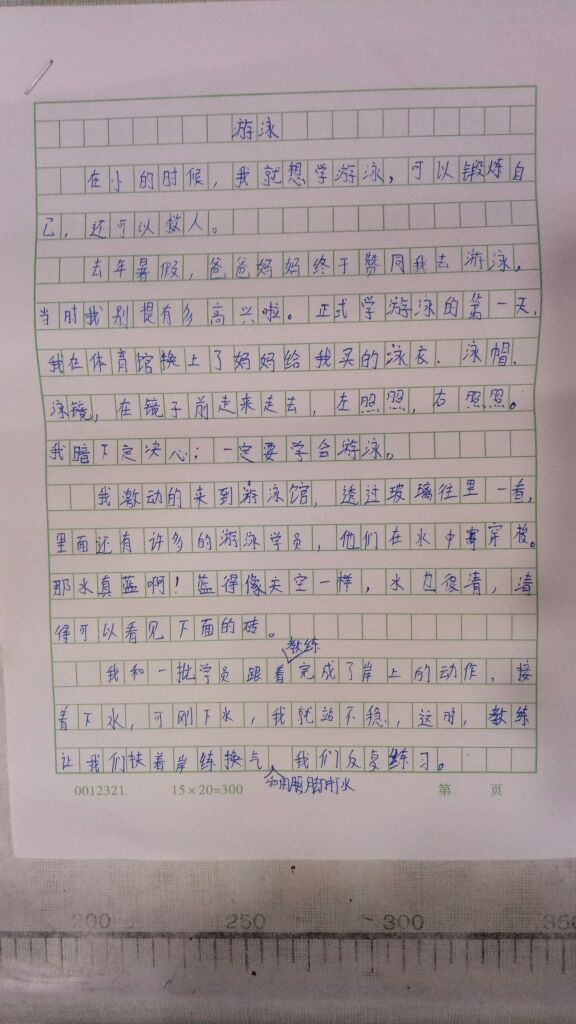 游泳
在小的时候，我就想学游泳，可以锻炼自
己，还可以救人。
去年暑假，爸爸妈妈终于赞同我去游泳，
当时我别提有多高兴啦。正式学游泳的第一天，
我在体育馆换上了妈妈给我买的泳衣、泳帽、
泳镜，在镜子前走来走去，左照照，右照照。
我暗下定决心；一定要学会游泳。
我激动的来到游泳馆，透过玻璃往里一看，
里面还有许多的游泳学员，他们在水中穿梭。
那水真蓝啊！蓝得像天空一样，水也很清，清
得可以看见下面的砖。
教练
我和一批学员跟着完成了岸上的动作，接
着下水，可刚下水，我就站不稳，这时，教练
让我们扶着岸练换气，我们反复练习。
和用腿打水
0012321 15×20=300 第 页
200 250 300 350